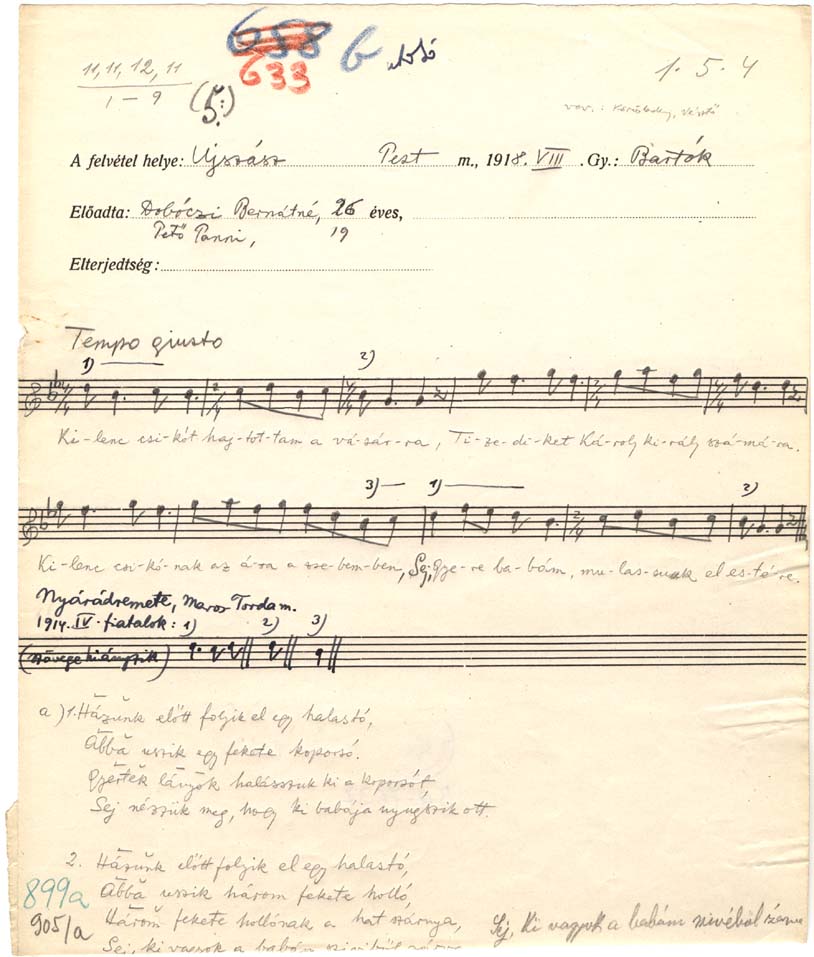 658 b utolsó
633
11, 11, 12, 11
1 – 9
(5:)
1. 5. 4
var.:
A felvétel helye: Ujszász Pest m., 1918. VIII. Gy.: Bartók
Előadta: Dobóczi Bernátné, 26 éves,
Pető Panni, 19
Elterjedtség:
Tempo giusto
1) 2)
Ki-lenc csi-kót haj-tot-tam a vá-sár-ra, Ti-ze-di-ket Ká-roly ki-rály szá-má-ra.
3) 1) 2)
Ki-lenc csi-kó-nak az á-ra a zse-bem-ben, Sej, gye-re ba-bám, mu-las-sunk el es-té-re.
Nyárádremete, Maros Torda m.
1914. IV. fiatalok: 1) 2) 3)
(szövege hiányzik)
a) 1. Házunk előtt folyik el egy halastó,
Abba uszik egy fekete koporsó.
Gyertek lányok halásszuk ki a koporsót,
Sej nézzük meg, hogy ki babája nyugszik ott.
2. Házunk előtt folyik el egy halastó,
Abba uszik három fekete holló,
Három fekete hollónak a hat szárnya,
Sej, ki vagyok a babám szivéből zárva
Sej, Ki vagyok a babám szivéből zárva
899a
905/a